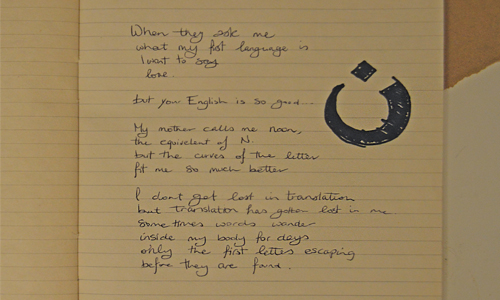 When they ask me
what my first language is
I want to say
love.
but your English is so good...
My mother calls me noon,
the equivelent of N.
but the curves of the letter
fit me so much better
ن
I dont get lost in translation
but translation has gotten lost in me
sometimes words wander
inside my body for days
only the first letters escaping
before they are found.